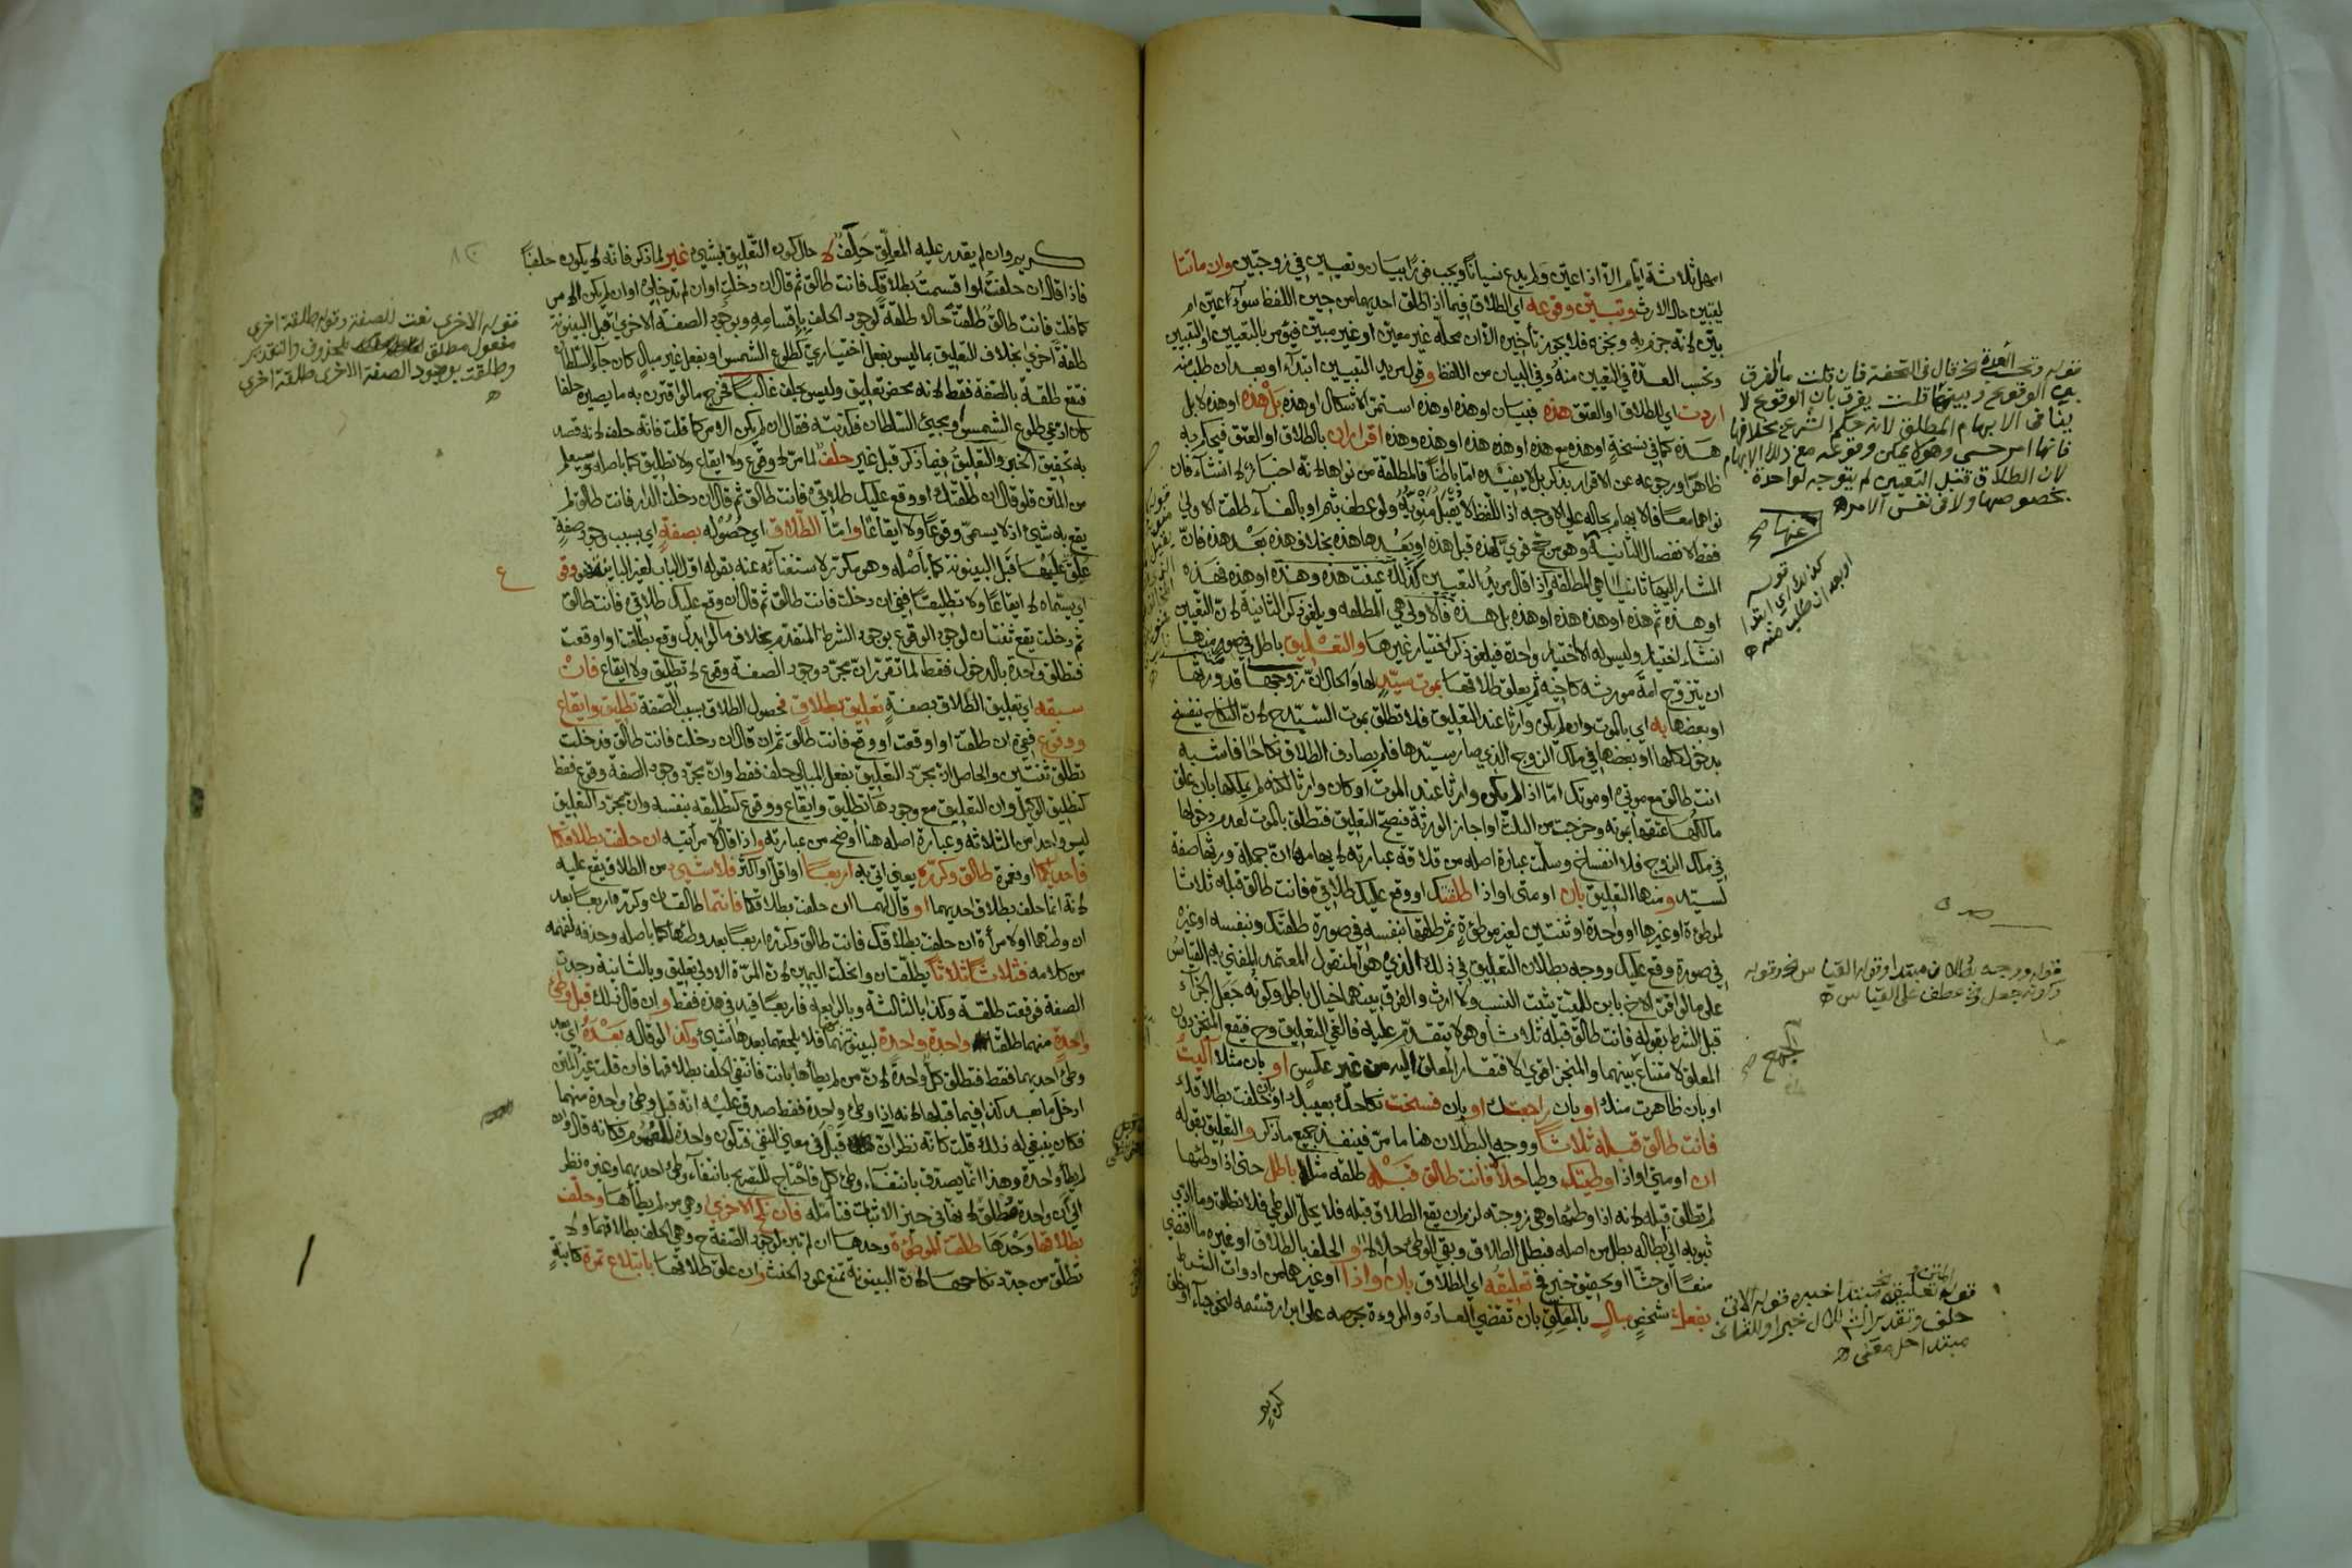 امهل ثلاثة ايام الا اذا عين ولم يدع نسيانا ويجب فورا بيان وتعيين في زوجتين وان ماتتا
ليتبين حال الارث وتبين وقوعه اي الطلاق فيما اذا طلق احديهما من حين اللفظ سواء اعين ام
بين لانه جزم به ونجزه فلا يجوز تأخيره الا ان محله غير معين او غير مبين فيؤمر بالتعيين او التبيين
وتحسب العدة في التعيين منه وفي البيان من اللفظ وقول مريد التبيين ابتداء او بعد ان طلب منه
اردت اي للطلاق او العتق هذه فبيان او هذه او هذه استمر الاشكال او هذه بل هذه او هذه لا بل
هذه كما في نسخة او هذه مع هذه او هذه هذه او هذه وهذه اقرار ان بالطلاق او العتق فيحكم به
ظاهرا ورجوعه عن الاقرار بذكر بل لا يفيده اما باطنا فالمطلقة من نواها لانه اخبار لا انشاء فان
نواهما معا فالابهام بحاله على الاوجه اذ اللفظ لا يقبل منويه ولو عطف بثم او بالفاء طلقت الاولى
فقط لانفصال الثانية وهو مرجح قوي كهذه قبل هذه او بعدها هذه بخلاف هذه بعد هذه فان
المشار اليها ثانيا هي المطلقة واذا قال مريد التعيين كذلك عينت هذه وهذه او هذه فهذه
او هذه ثم هذه او هذه هذه او هذه بل هذه فالاولى هي المطلقه ويلغو ذكر الثانية لان التعيين
انشاء اختيار وليس له الا اختيار واحدة فيلغو ذكر اختيار غيرها والتعليق باطل في صور منها
ان يتزوج امة مورثه كاخيه ثم يعلق طلاقها بموت سيد لها والحال ان زوجها قد ورثها
او بعضها به اي بالموت وان لم يكن وارثا عند التعليق فلا تطلق بموت السيد ح لان النكاح ينفسخ
بدخول كلها او بعضها في ملك الزوج الذي صار سيدها فلم يصادف الطلاق نكاحا فاشبه
انت طالق مع موتي او موتك اما اذا لم يكن وارثا عند الموت او كان وارثا لكنه لم يملكها بان علق
مالكها عتقها بموته وخرجت من الثلث او اجاز الورثة فيصح التعليق فتطلق بالموت لعدم دخولها
في ملك الزوج فلا انفساخ وسلمت عبارة اصله من قلاقة عبارته لايهامها ان جملة ورثها صفة
لسيد ومنها التعليق بان او متى او اذا طلقتك او وقع عليك طلاقي فانت طالق قبله ثلاثا
لموطوءة او غيرها او واحدة او ثنتين لغير موطوءة ثم طلقها بنفسه في صورة طلقتك وبنفسه او غيره
في صورة وقع عليك ووجه بطلان التعليق في ذلك الذي هو المنقول المعتمد المفتى به القياس
على ما لو اقر الاخ بابن للميت يثبت النسب ولا ارث والفرق بينهما خيال باطل وكونه جعل الجزاء
قبل الشرط بقوله فانت طالق قبله ثلاثا وهو لا يتقدم عليه فالغي التعليق وح فيقع المنجز دون
المعلق لامتناع بينهما والمنجز اقوى لافتقار المعلق اليه من غير عكس او بان مثلا آليت
او بان ظاهرت منك او بان راجعتك او بان فسخت نكاحك بعيبك او بان حلفت بطلاقك
فانت طالق قبله ثلاثا ووجه البطلان هنا ما مر فينفذ جميع ما ذكر والتعليق بقوله
ان او متى او اذا وطيتك وطيا حلالا فانت طالق قبله طلقه مثلا باطل حتى اذا وطئها
لم تطلق قبله لانه اذا وطئها وهي زوجته لزم ان يقع الطلاق قبله فلا يحل الوطي فلا تطلق وما ادى
ثبوته الى ابطاله بطل من اصله فبطل الطلاق وبقي الوطئ حلالا والحلف بالطلاق او غيره ما اقتضى
منعا او حثا او تحقيق خبر في تعليقه اي الطلاق بان او اذا او غيرها من ادوات الشرط
بفعل شخص مبال بالمعلق بان تقضي العادة والمروءة بحرصه على ابرار قسمه لنحو حياء او خلق
كريم
قوله وتحسب العدة نحو قال في التحفة فان قلت ما الفرق
بين الوقوع وبينها قلت يفرق بان الوقوع لا
ينافي الابهام المطلق لانه حكم الشرع بخلافها
فانها امر حسي وهو لا يمكن وقوعه مع ذلك الابهام
لان الطلاق قبل التعيين لم يتوجه لواحدة
بخصوصها ولا في نفس الامر
عنها صح
قوله
كذلك اي ابتدا
او بعد ان طلب منه
قوله ووجه بطلان مبتدا وقوله القياس خبر وقوله
وكونه جعل نحو عطف على القياس
الجميع صح
قوله تعليقه مبتدا خبره قوله الاتي
حلف
مبتدا حل معنى
كريم وان لم يقدر عليه المعلق حلف لا حال كون التعليق بشيء غير لما ذكر فانه لا يكون حلفا
فاذا قال ان حلفت او اقسمت بطلاقك فانت طالق ثم قال ان دخلت او ان لم تدخلي او ان لم يكن الامر
كما قلت فانت طالق طلقت حالا طلقة لوجود الحلف باقسامه وبوجود الصفة الاخرى قبل البينونة
طلقة اخرى بخلاف التعليق بما ليس بفعل اختياري كطلوع الشمس او بفعل غير مبال كان جاء السلطان
فتقع طلقة بالصفة فقط لانه محض تعليق وليس بحلف غالبا فخرج ما لو اقترن به ما يصيره حلفا
كان ادعى طلوع الشمس او مجيئ السلطان فكذبته فقال ان لم يكن الامر كما قلت فانه حلف لانه قصد
به تحقيق الخبر والتعليق فيما ذكر قبل غير حلف لما مر لا وقوع ولا ايقاع ولا تطليق كما باصله وسيعلم
من المتن فلو قال ان طلقتك او وقع عليك طلاقي فانت طالق ثم قال ان دخلت الدار فانت طالق لم
يقع به شيئ اذ لا يسمى وقوعا ولا ايقاعا واما الطلاق اي حصوله بصفة اي بسبب وجود صفة
علق عليها قبل البينونة كما باصله وهو مكرر لاستغنائه عنه بقوله اول الباب لغير البائن فوقوع
اي يسماه لا ايقاعا ولا تطليقا ففي ان دخلت فانت طالق ثم قال ان وقع عليك طلاقي فانت طالق
ثم دخلت يقع ثنتان لوجود الوقوع بوجود الشرط المتقدم بخلاف ما لو ابدل وقع بطلقت او اوقعت
فتطلق واحدة بالدخول فقط لما تقرر ان مجرد وجود الصفة وقوع لا تطليق ولا ايقاع فان
سبقه اي تعليق الطلاق بصفة تعليق بطلاق فحصول الطلاق بسبب الصفة تطليق وايقاع
ووقوع فيمن ان طلقت او اوقعت او وقع فانت طالق ثم ان قال ان دخلت فانت طالق ودخلت
تطلق ثنتين والحاصل ان مجرد التعليق بفعل المبالي حلف فقط وان مجرد وجود الصفة وقوع فقط
كتطليق الوكيل وان التعليق مع وجودها تطليق وايقاع ووقوع كتطليقه بنفسه وان مجرد التعليق
ليس واحدا من الثلاثه وعبارة اصله هنا اوضح من عبارته واذا قال لامرأتيه ان حلفت بطلاقكما
فاحديكما او فعمرة طالق وكرره يعني اتى به اربعا او اقل او اكثر فلا شيئ من الطلاق يقع عليه
لانه انما حلف بطلاق احديهما او قال لهما ان حلفت بطلاقكما فانتما طالقتان وكرره اربعا بعد
ان وطئهما او لامرأة ان حلفت بطلاقك فانت طالق وكرره اربعا بعد وطئها كما باصله وحذفه لفهمه
من كلامه فثلاثا ثلاثا يطلقان وانحلت اليمين لان المرة الاولى تعليق وبالثانية وجدت
الصفة فوقعت طلقة وكذا بالثالثة وبالرابعة فاربعا قيد في هذه فقط وان قال ذلك قبل وطئ
واحدة منهما طلقتا واحدة واحدة لبينونتهما فلا يلحقهما بعدها شيئ وكذا لو قاله بعده اي بعد
وطئ احديهما فقط فتطلق كل واحدة لان من لم يطأها بانت فانتفى الحلف بطلاقها فان قلت غير المتن
ادخل ما بعد كذا فيما قبلها لانه اذا وطئ واحدة فقط صدق عليه انه قبل وطئ واحدة منهما
فكان ينبغي له ذلك قلت كانه نظر ان قبل في معنى النفي فتكون واحدة للعموم فكانه قال وان
لم يطأ واحدة وهذا انما يصدق بانتفاء وطئ كل فاحتاج للتصريح بانتفاء وطئ احديهما وغيره نظر
الى ان واحدة مطلق لانها في حيز الاثبات فتأمله فان نكح الاخرى وهي من لم يطأها وحلف
بطلاقها وحدها طلقت الموطوءة وحدها ان لم تبن لوجود الصفة ح وهي الحلف بطلاقهما ولا
تطلق من جدد نكاحها لان البينونة تمنع عود الحنث وان علق طلاقها بابتلاع تمرة كائنة
قوله الاخرى نعت للصفة وقوله طلقة اخرى
مفعول مطلق لمحذوف والتقدير
وطلقت بوجود الصفة الاخرى طلقة اخرى
ع